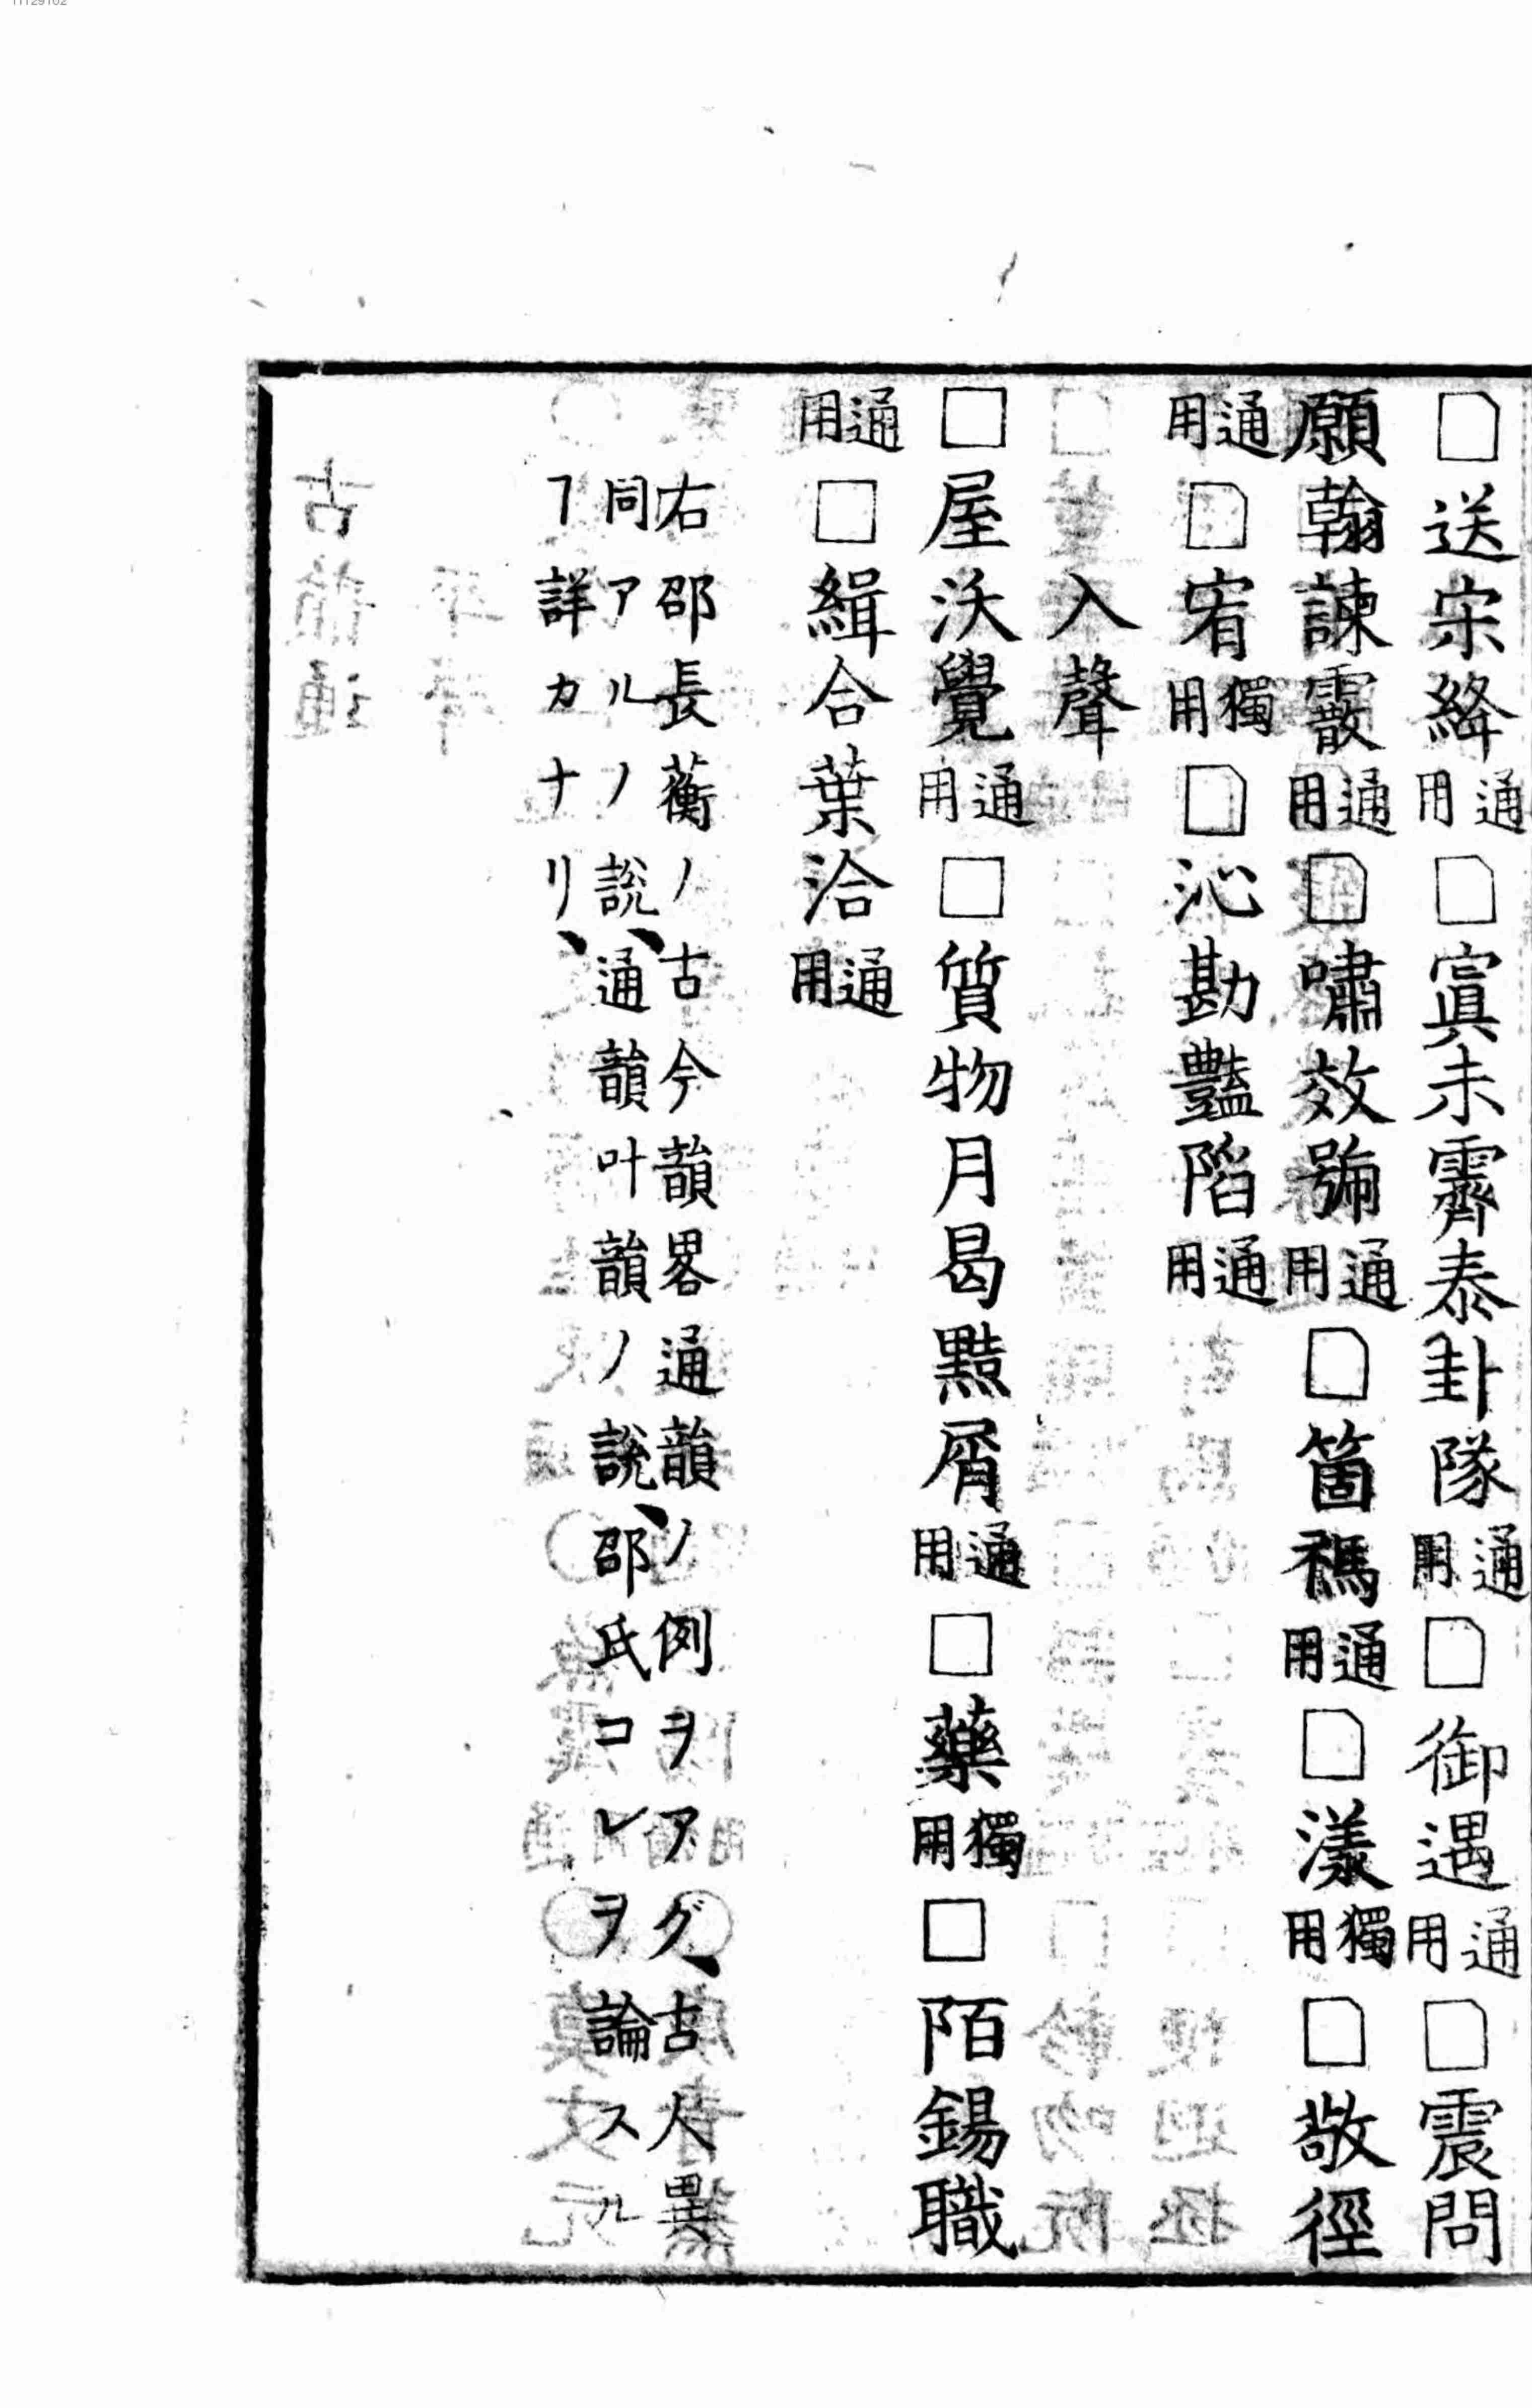 □送宋絳通用□寘未霽泰卦隊通用□御遇通用□震問
願翰諫霰通用□嘯效號通用□箇禡通用□漾獨用□敬徑
通用□宥獨用□沁勘豔陷通用
入聲
□屋沃覺通用□質物月曷黠屑通用□藥獨用□陌錫職
通用□緝合葉洽通用
右邵長蘅ノ古今韻畧通韻ノ例ヲアグ、古人異
同アルノ說、通韻叶韻ノ說、邵氏コレヲ論スル
ヿ詳カナリ、